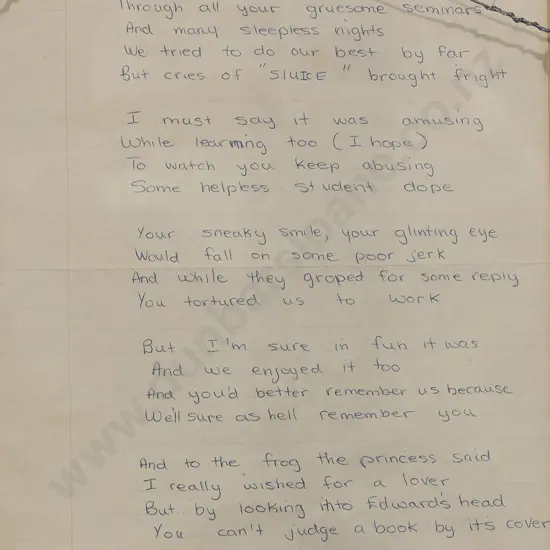 Through all your gruesome seminars
And many sleepless nights
We tried to do our best by far
But cries of "SLUICE" brought fright
I must say it was amusing
While learning too (I hope)
To watch you keep abusing
Some helpless student dope
Your sneaky smile, your glinting eye
Would fall on some poor jerk
And while they groped for some reply
You tortured us to work
But I'm sure in fun it was
And we enjoyed it too
And you'd better remember us because
We'll sure as hell remember you
And to the frog the princess said
I really wished for a lover
But .. by looking into Edward's head
You can't judge a book by it's cover